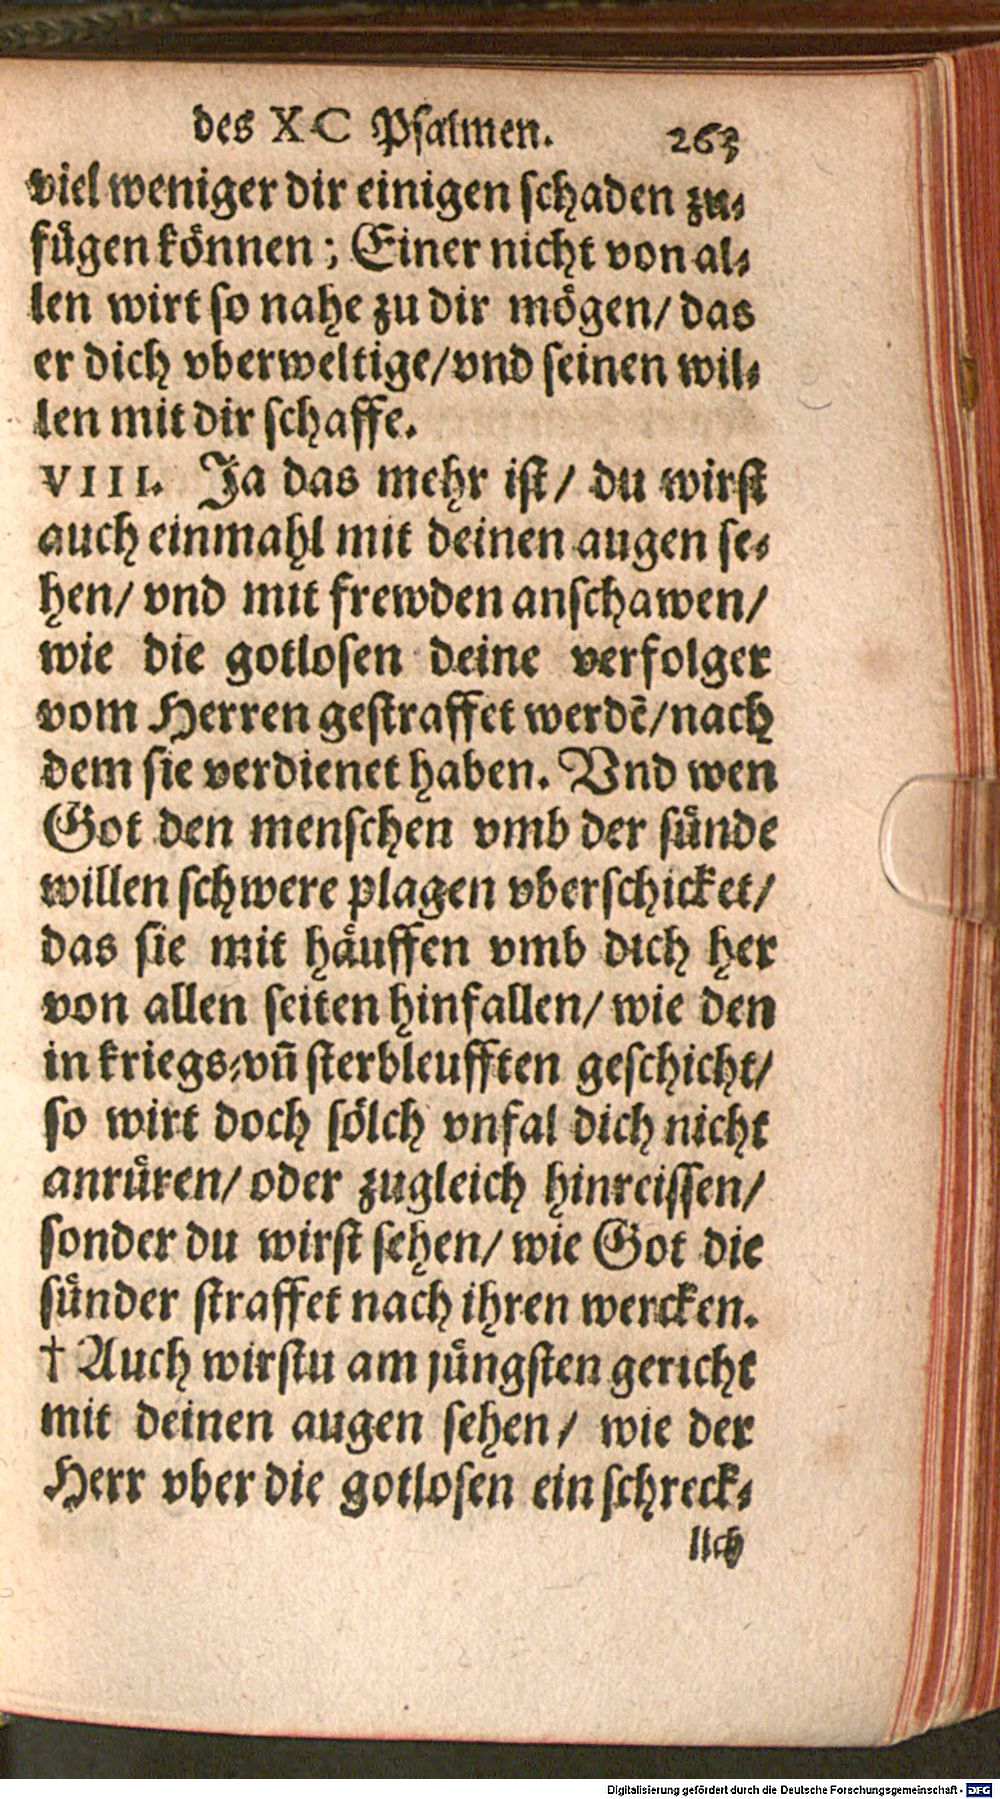 des XC Psalmen. 263
viel weniger dir einigen schaden zu⸗
fuͤgen koͤnnen; Einer nicht von al⸗
len wirt so nahe zu dir moͤgen/ das
er dich vberweltige/vnd seinen wil⸗
len mit dir schaffe.
VIII. Ja das mehr ist/ du wirst
auch einmahl mit deinen augen se⸗
hen/ vnd mit frewden anschawen/
wie die gotlosen deine verfolger
vom Herren gestraffet werdẽ/nach
dem sie verdienet haben. Vnd wen
Got den menschen vmb der suͤnde
willen schwere plagen vberschicket/
das sie mit haͤuffen vmb dich her
von allen seiten hinfallen/ wie den
in kriegs⸗vñ sterbleufften geschicht/
so wirt doch soͤlch vnfal dich nicht
anruͤren/ oder zugleich hinreissen/
sonder du wirst sehen/ wie Got die
suͤnder straffet nach ihren wercken.
† Auch wirstu am juͤngsten gericht
mit deinen augen sehen/ wie der
Herr vber die gotlosen ein schreck⸗
lich
Digitalisierung gefördert durch die Deutsche Forschungsgemeinschaft - DFG